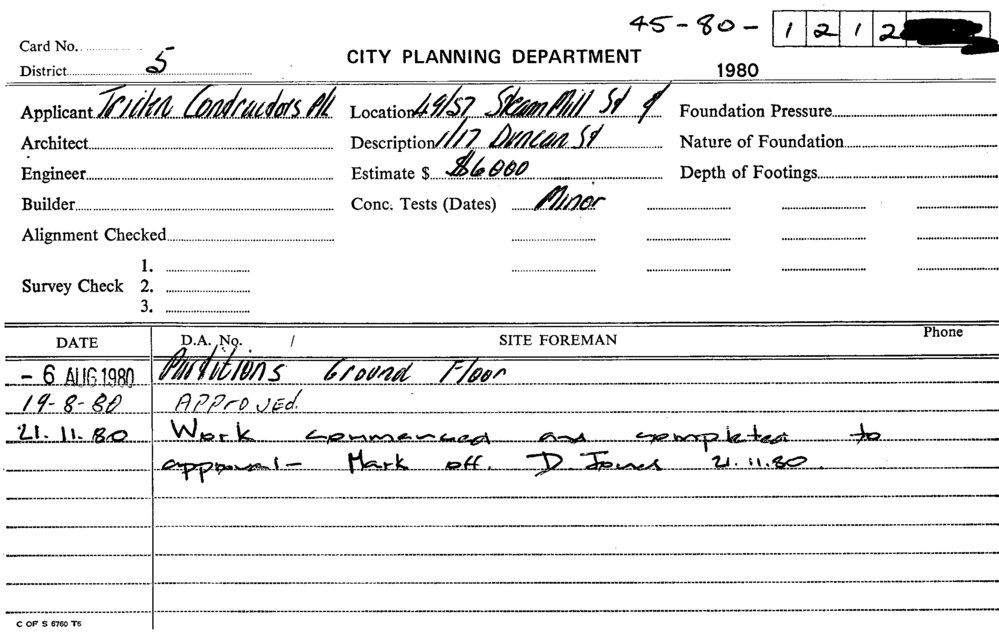 45-80- 1 2 1 2
Card No.
District 5
CITY PLANNING DEPARTMENT
1980
Applicant Contractors P/L Location 49/57 Steam Mill St & Foundation Pressure
Architect Description 1/17 Duncan St Nature of Foundation
Engineer Estimate $ $6000 Depth of Footings
Builder Conc. Tests (Dates) Minor
Alignment Checked
1.
Survey Check 2.
3.
DATE D.A. No. / SITE FOREMAN Phone
- 6 AUG 1980 Partitions Ground Floor
19-8-80 APPROVED.
21.11.80 Work commenced and completed to
approval- Mark off. D. Jones 21.11.80.
C OF S 6760 T6